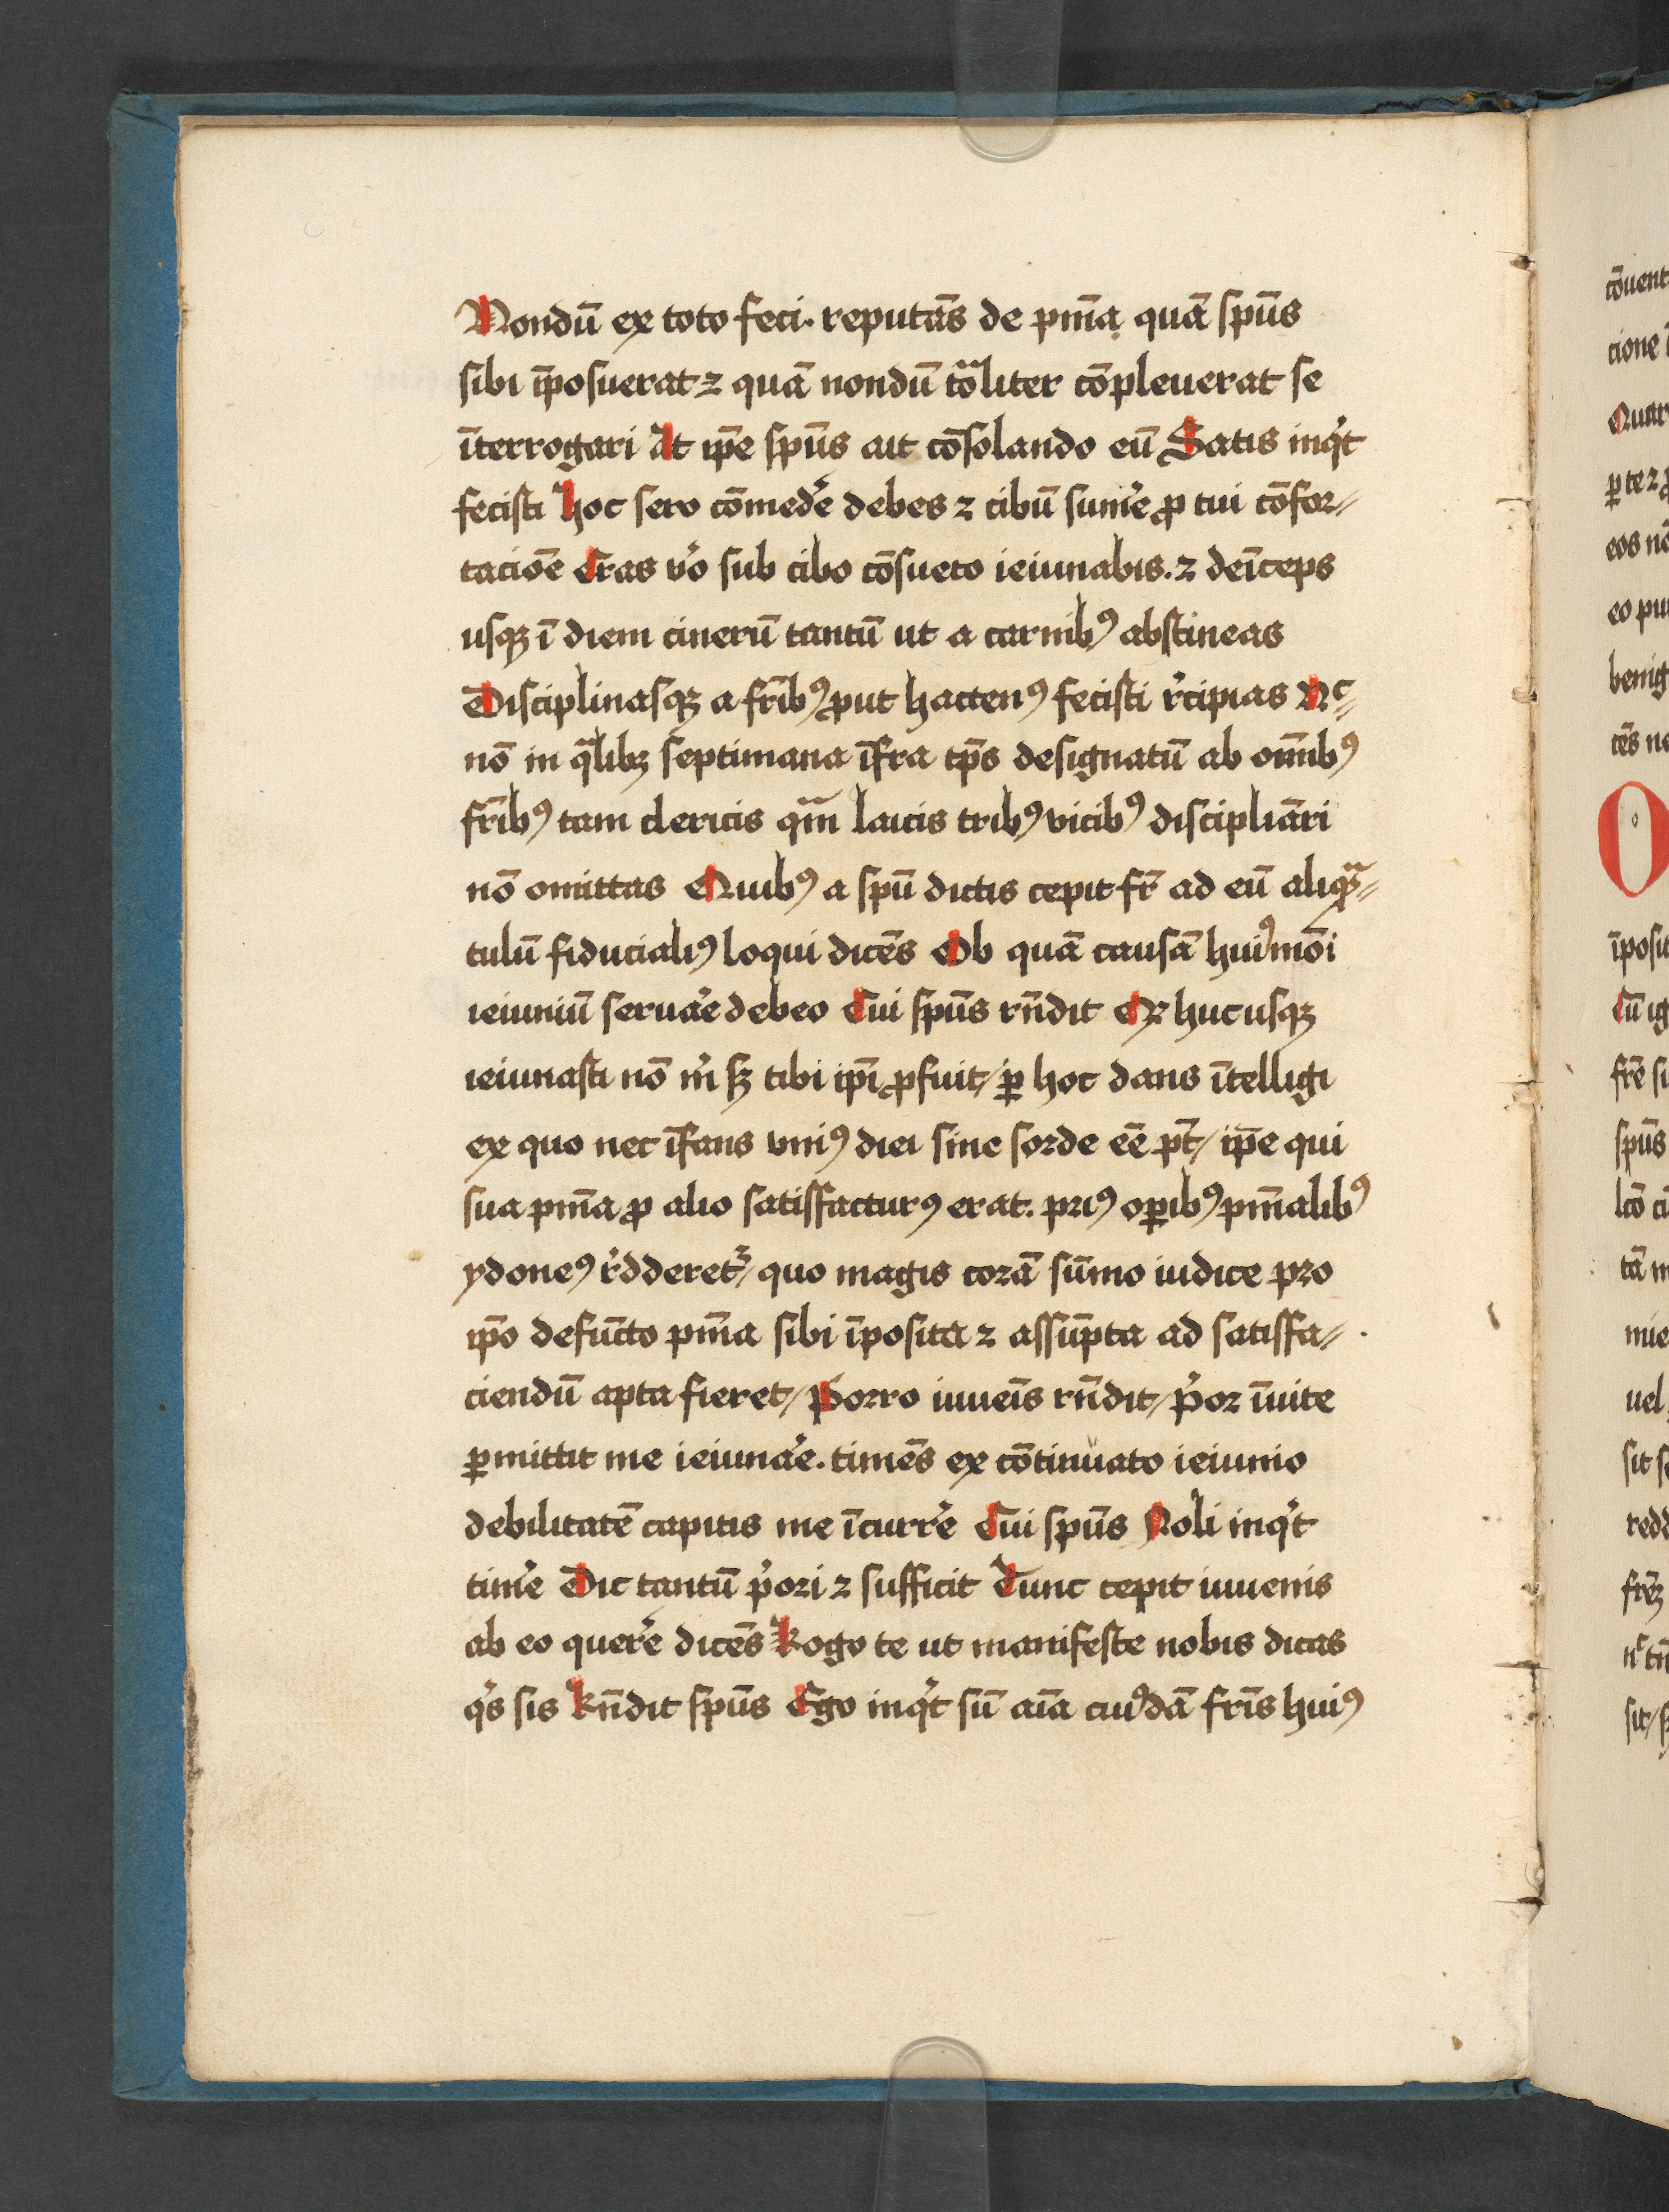 Nondū ex toto feci. reputās de pn̄ia quā spūs
sibi īposuerat ⁊ quā nondū tōliter cōpleuerat se
īterrogari At ip̄e spūs ait cōsolando eū Satis inqͥt
fecisti Hoc sero cōmed'e debes ⁊ cibū sum'e ꝓ tui cōfor⸗
tacioē Cras v'o sub cibo cōsueto ieiunabis. ⁊ deīceps
usqꝫ ī diem cinerū tantū ut a carnibꝰ abstineas
Disciplinasqꝫ a fr̄ibꝰ ꝓut hactenꝰ fecisti r'cipias Nᶜ⸗
nō in qᷓlibꝫ septimana īfra tp̄s designatū ab om̄ibꝰ
fr̄ibꝰ tam clericis qᷓm laicis tribꝰ vicibꝰ discipliāri
nō omittas Quibꝰ a spū dictis cepit fr̄ ad eū aliqᷓ⸗
tulū fiducialiꝰ loqui dicēs Ob quā causā huiꝰmōi
ieiuniū seruar'e debeo Cui spūs rn̄dit Qꝛ hucusqꝫ
ieiunasti nō m' sꝫ tibi ip̄i ꝓfuit/ ꝑ hoc dans ītelligi
ex quo nec īfans vniꝰ diei sine sorde eē pt̄/ ip̄e qui
sua pn̄ia ꝓ alio satisfacturꝰ erat. priꝰ oꝑibꝰ pn̄ialibꝰ
ydoneꝰ r'dderet᷑/ quo magis corā sūmo iudice pro
ip̄o defūcto pn̄ia sibi īposita ⁊ assūpta ad satisfa⸗
ciendū apta fieret/ Porro iuueīs rn̄dit/ pͥor īuite
ꝑmittit me ieiunar'e. timēs ex cōtinuato ieiunio
debilitatē capitis me īcurr'e Cui spūs Noli inqͥt
tim'e Dic tantū pͥori ⁊ sufficit Tunc cepit iuuenis
ab eo quer'e dicēs Rogo te ut manifeste nobis dicas
qͥs sis Rn̄dit spūs Ego inqͥt sū aīa cuiꝰdā fr̄is huiꝰ